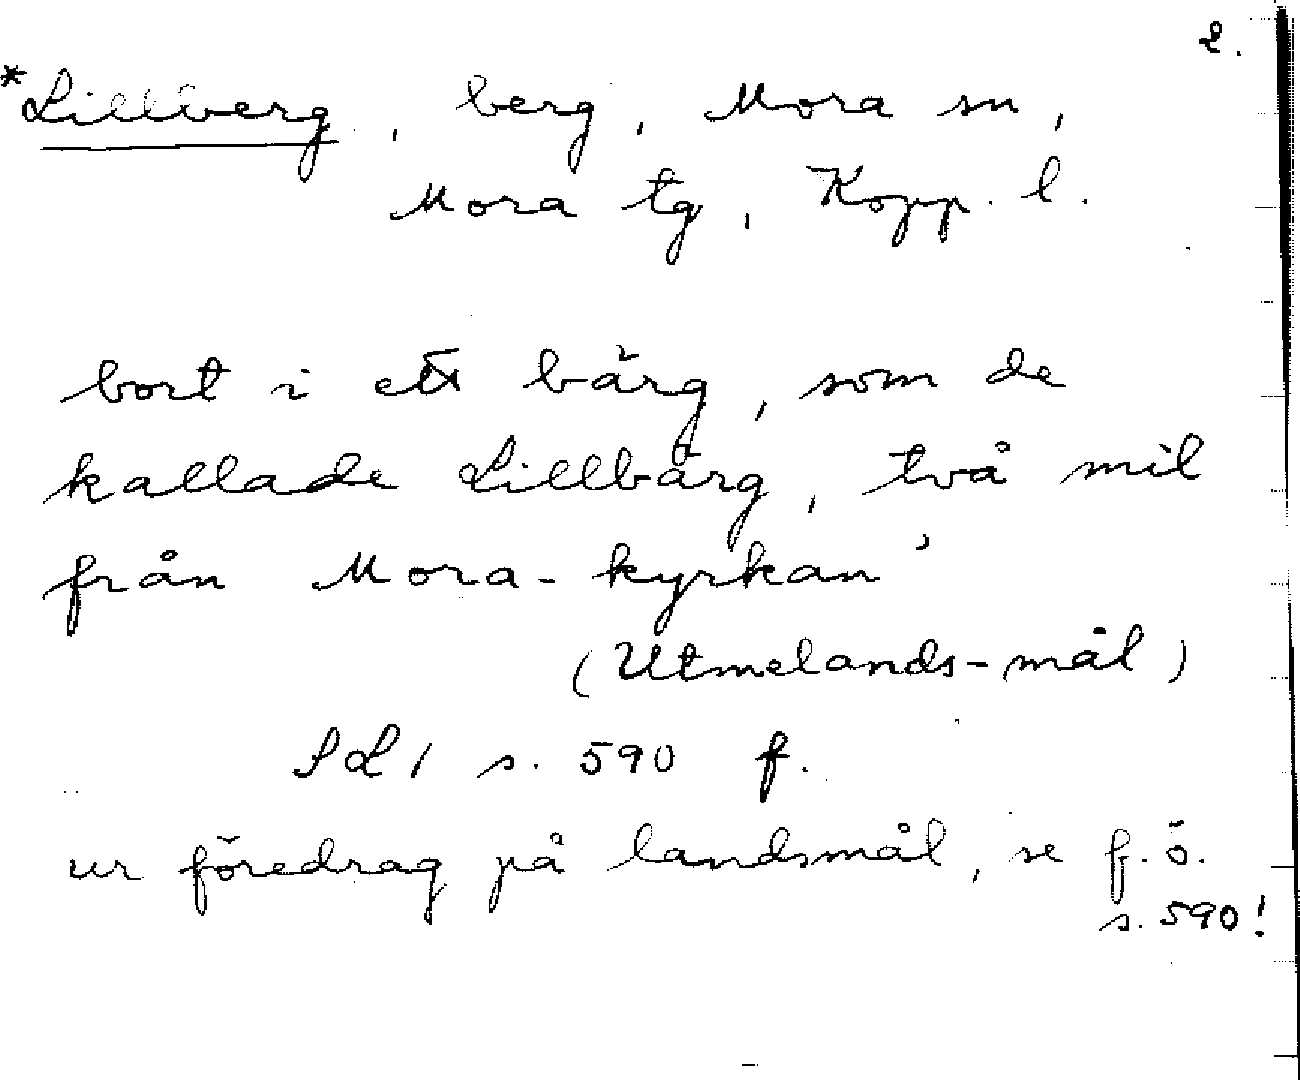 2.
*Lillberg, berg, Mora sn,
Mora tg, Kopp. l.
bort i ett bärg, som de
kallade Lillbärg, två mil
från Mora-kyrkan'
(Utmelands-mål)
SL1 s. 590 f.
ur föredrag på landsmål, se f.ö.
s. 590!